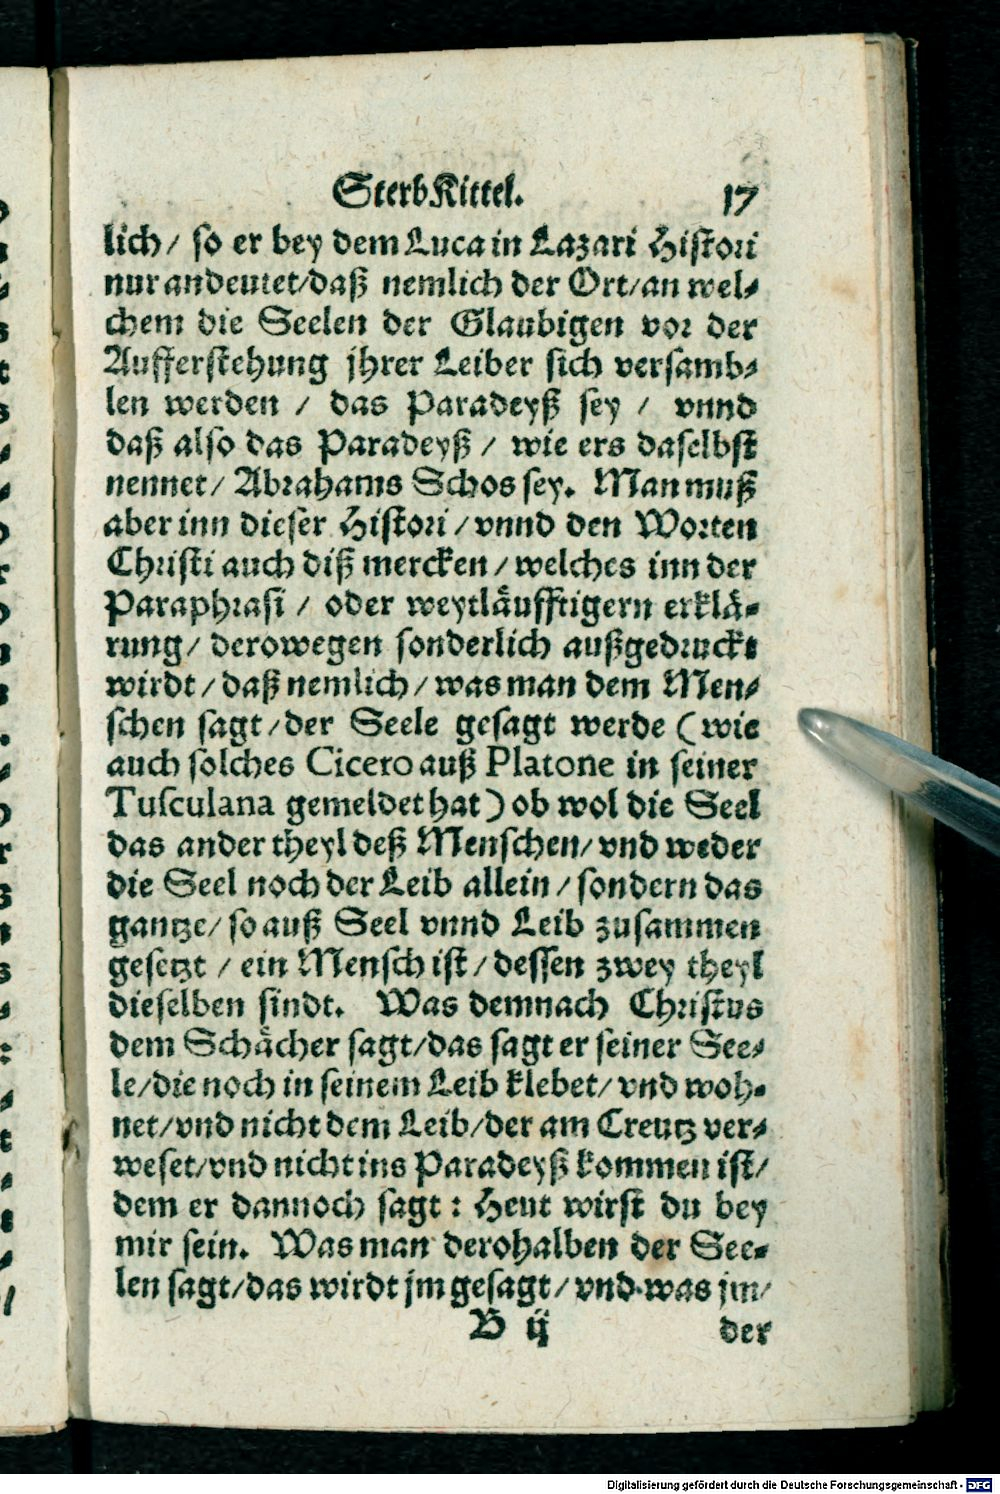 SterbKittel. 17
lich/ so er bey dem Luca in Lazari Histori
nur andeutet/daß nemlich der Ort/an wel-
chem die Seelen der Glaubigen vor der
Aufferstehung jhrer Leiber sich versamb-
len werden / das Paradeyß sey / vnnd
daß also das Paradeyß / wie ers daselbst
nennet/ Abrahams Schos sey. Man muß
aber inn dieser Histori / vnnd den Worten
Christi auch diß mercken / welches inn der
Paraphrasi / oder weytläufftigern erklä-
rung/ derowegen sonderlich außgedruckt
wirdt / daß nemlich / was man dem Men-
schen sagt/der Seele gesagt werde (wie
auch solches Cicero auß Platone in seiner
Tusculana gemeldet hat) ob wol die Seel
das ander theyl deß Menschen/ vnd weder
die Seel noch der Leib allein / sondern das
gantze/ so auß Seel vnnd Leib zusammen
gesetzt / ein Mensch ist / dessen zwey theyl
dieselben sindt. Was demnach Christus
dem Schächer sagt/das sagt er seiner See-
le/die noch in seinem Leib klebet/ vnd woh-
net/vnd nicht dem Leib/der am Creutz ver-
weset/vnd nicht ins Paradeyß kommen ist/
dem er dannoch sagt : Heut wirst du bey
mir sein. Was man derohalben der See-
len sagt/das wirdt jm gesagt / vnd was jm/
B ij der
Digitalisierung gefördert durch die Deutsche Forschungsgemeinschaft - DFG